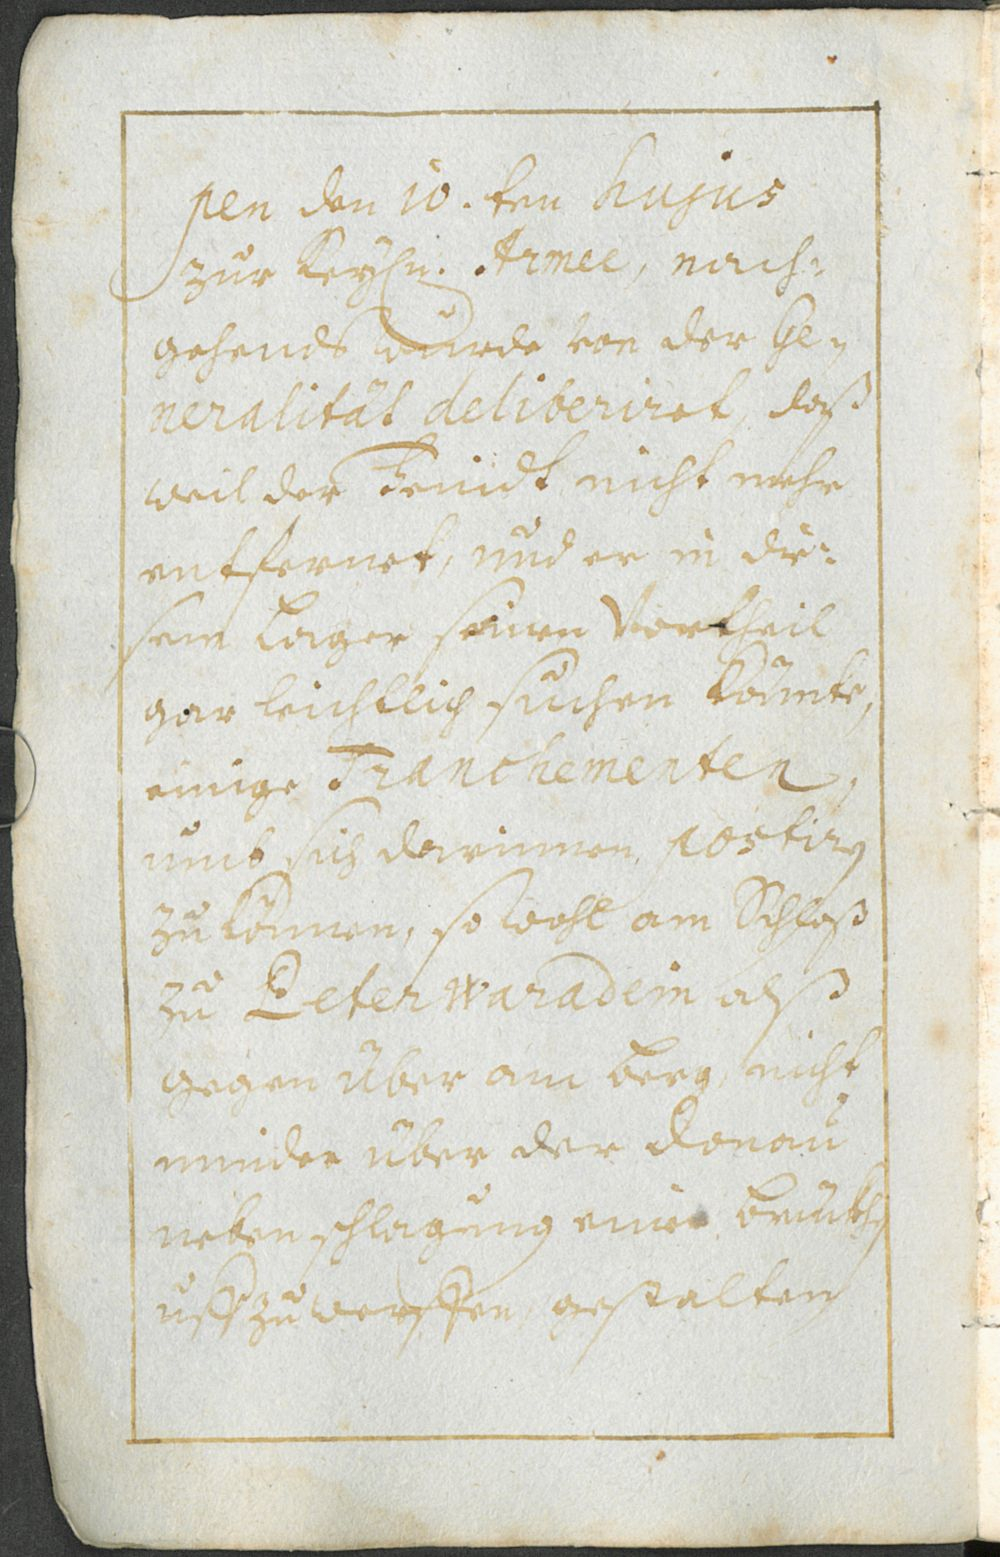 pen den 10.ten hujus
zur Keÿsn. Armee, nach-
gehends wurde von der Ge-
neralität deliberiret, daß
weil der Feindt nicht mehr
entfernet, und er in die-
sem Lager seinen Vortheil
gar leichtlich suchen könnte,
einige Tranchementen,
umb sich darinnen postirn
zu können, so wohl am Schloß
zu Peterwaradein alß
gegen über am Berg, nicht
minder über der Donau
neben schlagung einer Brückh
uffzuwerffen, gestalten